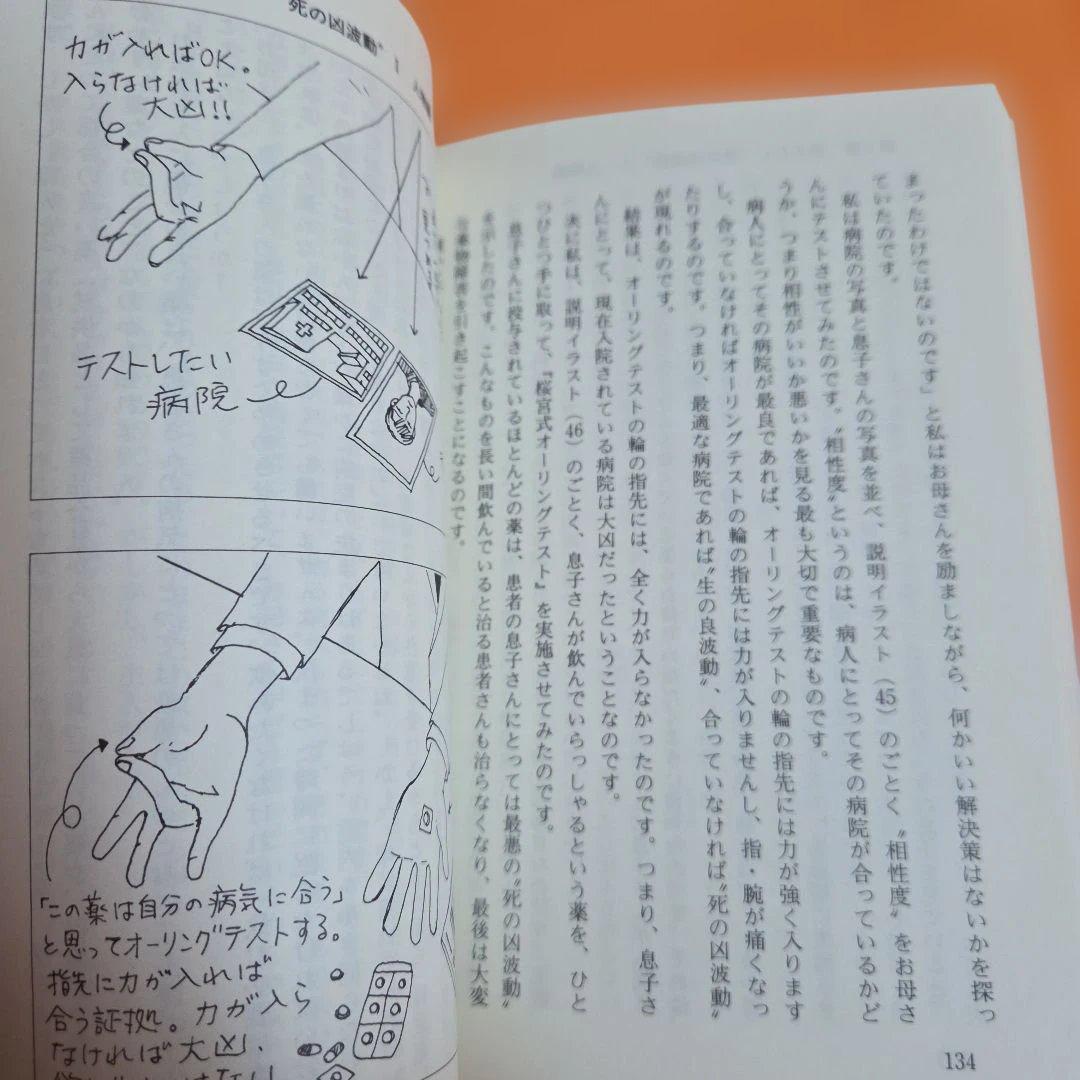 まったわけではないのです」と私はお母さんを励ましながら、何かいい解決策はないかを探っ
ていたのです。
私は病院の写真と息子さんの写真を並べ、説明イラスト（45）のごとく〝相性度〟をお母さ
んにテストさせてみたのです。〝相性度〟というのは、病人にとってその病院が合っているかど
うか、つまり相性がいいか悪いかを見る最も大切で重要なものです。
病人にとってその病院が最良であれば、オーリングテストの輪の指先には力が強く入ります
し、合っていなければオーリングテストの輪の指先には力が入りませんし、指・腕が痛くなっ
たりするのです。つまり、最適な病院であれば〝生の良波動〟、合っていなければ〝死の凶波動〟
が現れるのです。
結果は、オーリングテストの輪の指先には、全く力が入らなかったのです。つまり、息子さ
んにとって、現在入院されている病院は大凶だったということなのです。
次に私は、説明イラスト（46）のごとく、息子さんが飲んでいらっしゃるという薬を、ひと
つひとつ手に取って、『桜宮式オーリングテスト』を実施させてみたのです。
息子さんに投与されているほとんどの薬は、患者の息子さんにとっては最悪の〝死の凶波動〟
を示したのです。こんなものを長い間飲んでいると治る患者さんも治らなくなり、最後は大変
な薬物障害を引き起こすことになるのです。
134
死の凶波動〟
力が入ればOK。
入らなければ
大凶!!
テストしたい
病院
「この薬は自分の病気に合う」
と思ってオーリングテストする。
指先に力が入れば
合う証拠。力が入ら
なければ大凶、